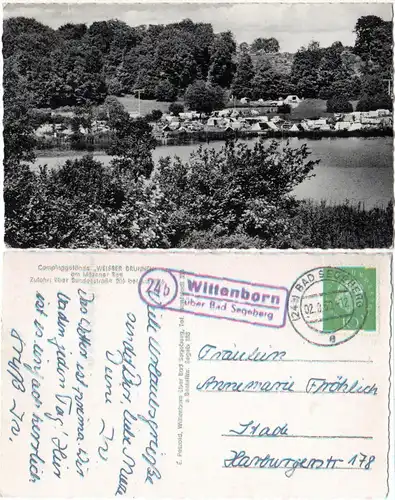 Campinggelände „WEISSER BRUNNEN"
am Mözener See
Zufahrt über Bundesstraße 206 bei
24b
Wittenborn
über Bad Segeberg
(24b) BAD SEGEBERG
e
10
Viele Urlaubsgrüße
sendet Dir, liebe Anne
Deine In.
Das Wetter ist prima. Wir
baden jeden Tag. Hier
ist es einfach herrlich
Gruß In.
Fräulein
Annemarie Fröhlich
Stade
Harburgerstr 178